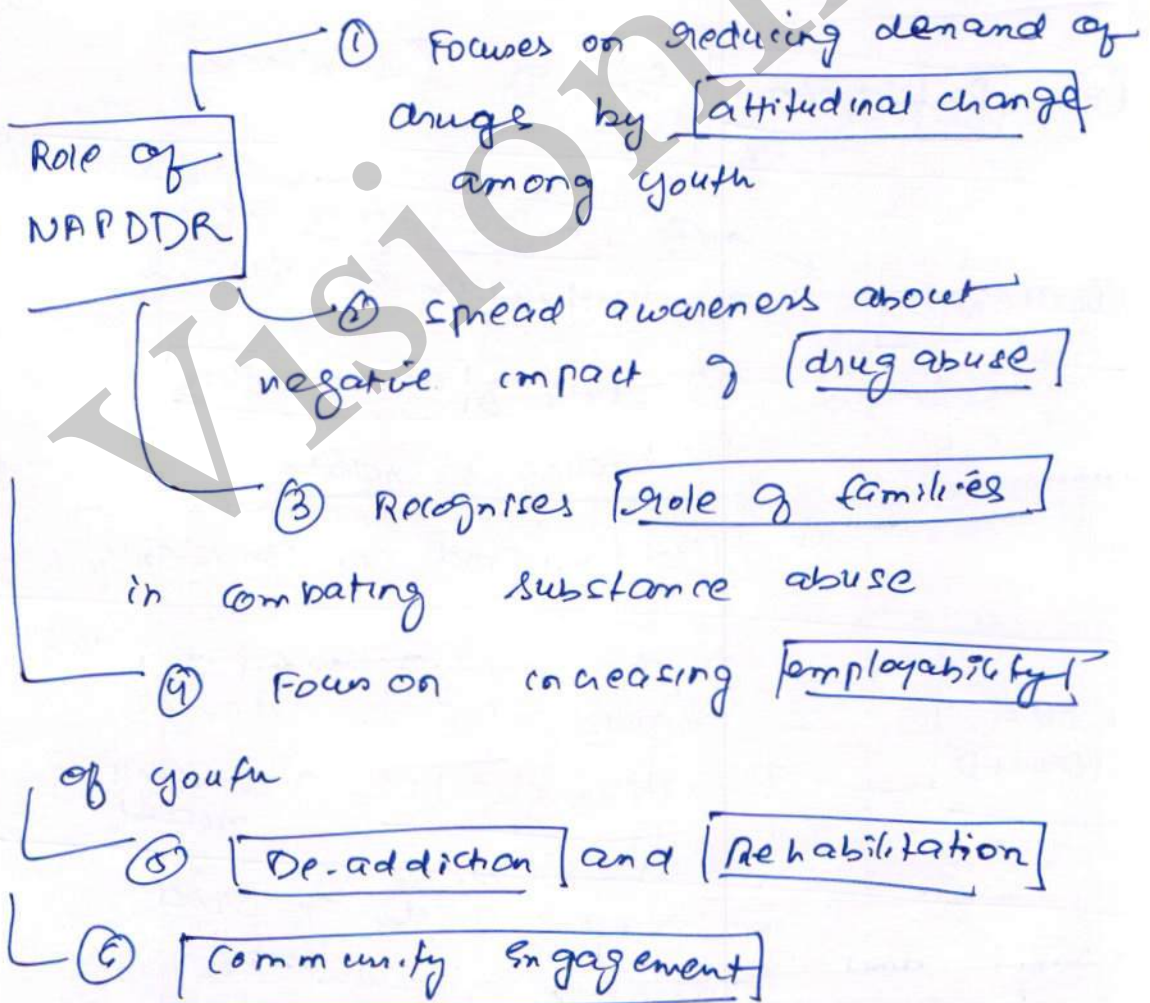 ① Focuses on reducing demand of
drugs by attitudinal change
among youth
Role of
NAPDDR
② spread awareness about
negative impact of drug abuse
③ Recognises role of families
in combating substance abuse
④ Focus on increasing employability
of youth
⑤ De-addiction and Rehabilitation
⑥ Community Engagement
Vision